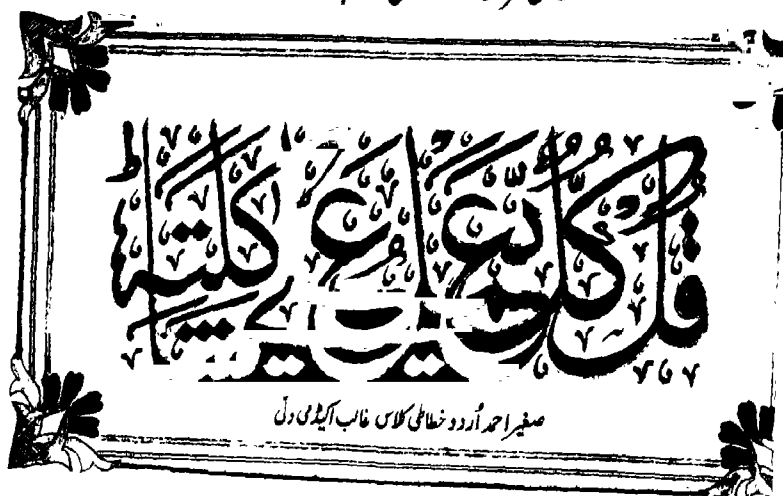 قُلْ كُلٌّ يَّعْمَلُ عَلٰى شَاكِلَتِهٖ
صغیر احمد اُردو خطاطی کلاس غالب اکیڈمی دلّی